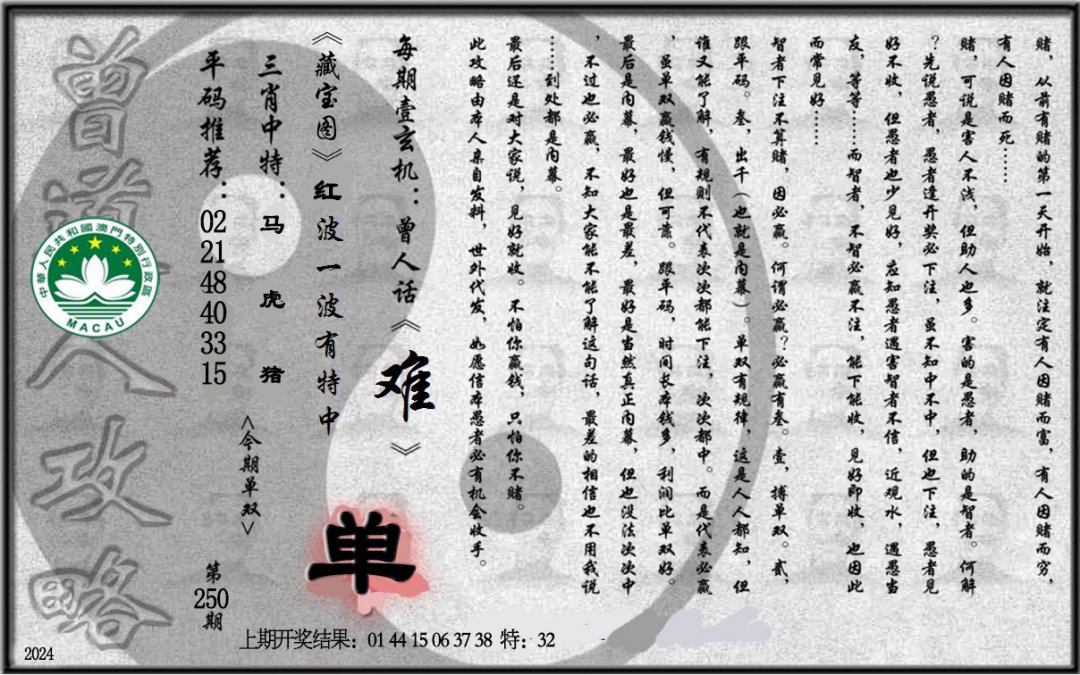 赌，从前有赌的第一天开始，就注定有人因赌而富，有人因赌而穷，
有人因赌而死……
赌，可说是害人不浅，但助人也多。害的是愚者，助的是智者。何解
？先说愚者，愚者逢开奖必下注，虽不知中不中，但也下注，愚者见
好不收，但愚者也少见好，应知愚者遇害智者不信，近观水，遇愚当
友，等等……而智者，不智必赢不注，能下能收，见好即收，也因此
而常见好……
智者下注不算赌，因必赢。何谓必赢？必赢有叁。壹，搏单双。贰，
跟平码。叁，出千（也就是内幕）。单双有规律，这是人人都知，但
谁又能了解，有规则不代表次次都能下注，次次都中。而是代表必赢
，虽单双赢钱慢，但可靠。跟平码，时间长本钱多，利润比单双好。
最后是内幕，最好也是最差，最好是当然真正内幕，但也没法次次中
，不过也必赢，不知大家能不能了解这句话，最差的相信也不用我说
……到处都是内幕。
最后还是对大家说，见好就收。不怕你赢钱，只怕你不赌。
此攻略由本人亲自发料，世外代发，如愿信本愚者必有机会收手。
每期壹玄机：曾人话《难》
《藏宝图》红波一波有特中
单
三肖中特：马 虎 猪
<今期单双>
平码推荐：02 21 48 40 33 15
第250期
曾道人攻略
中華人民共和國澳門特別行政區
MACAU
上期开奖结果：01 44 15 06 37 38 特：32
2024